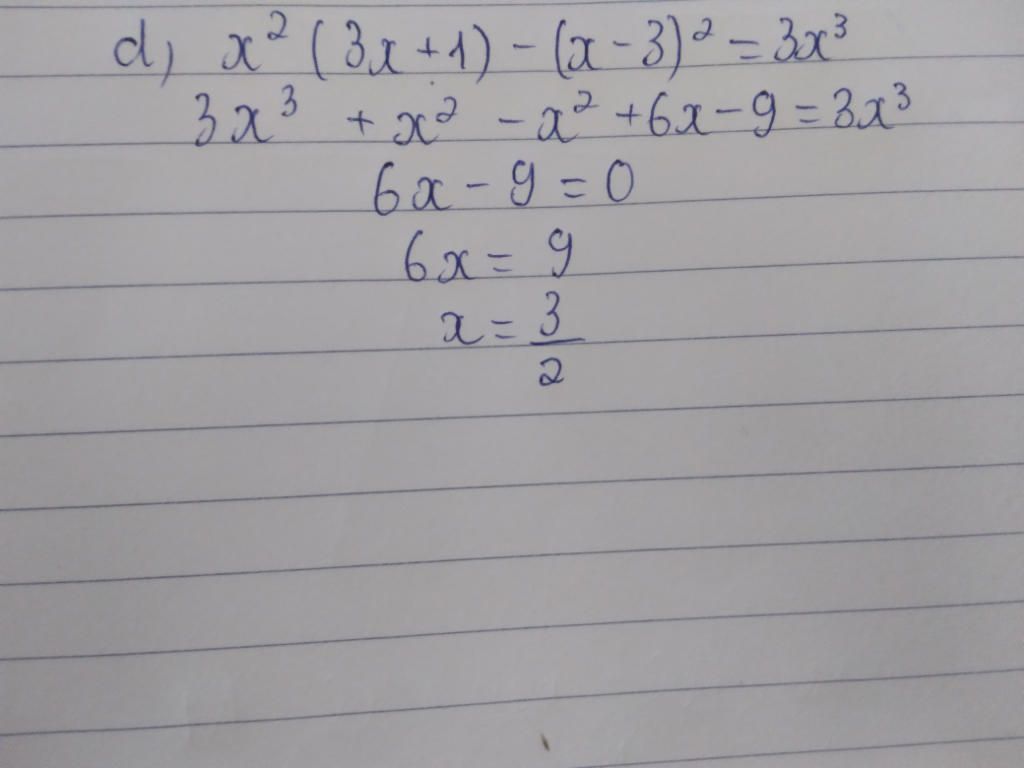 d, x² (3x+1) - (x-3)² = 3x³
3x³ + x² - x² + 6x - 9 = 3x³
6x - 9 = 0
6x = 9
x = 3/2